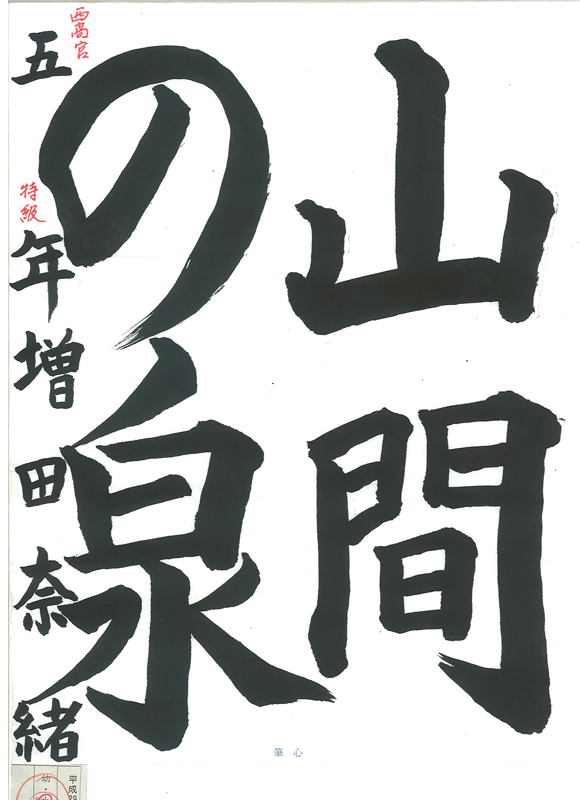 山間
の泉
五年増田奈緒
西高宮
特級
筆心
平成29
幼・小